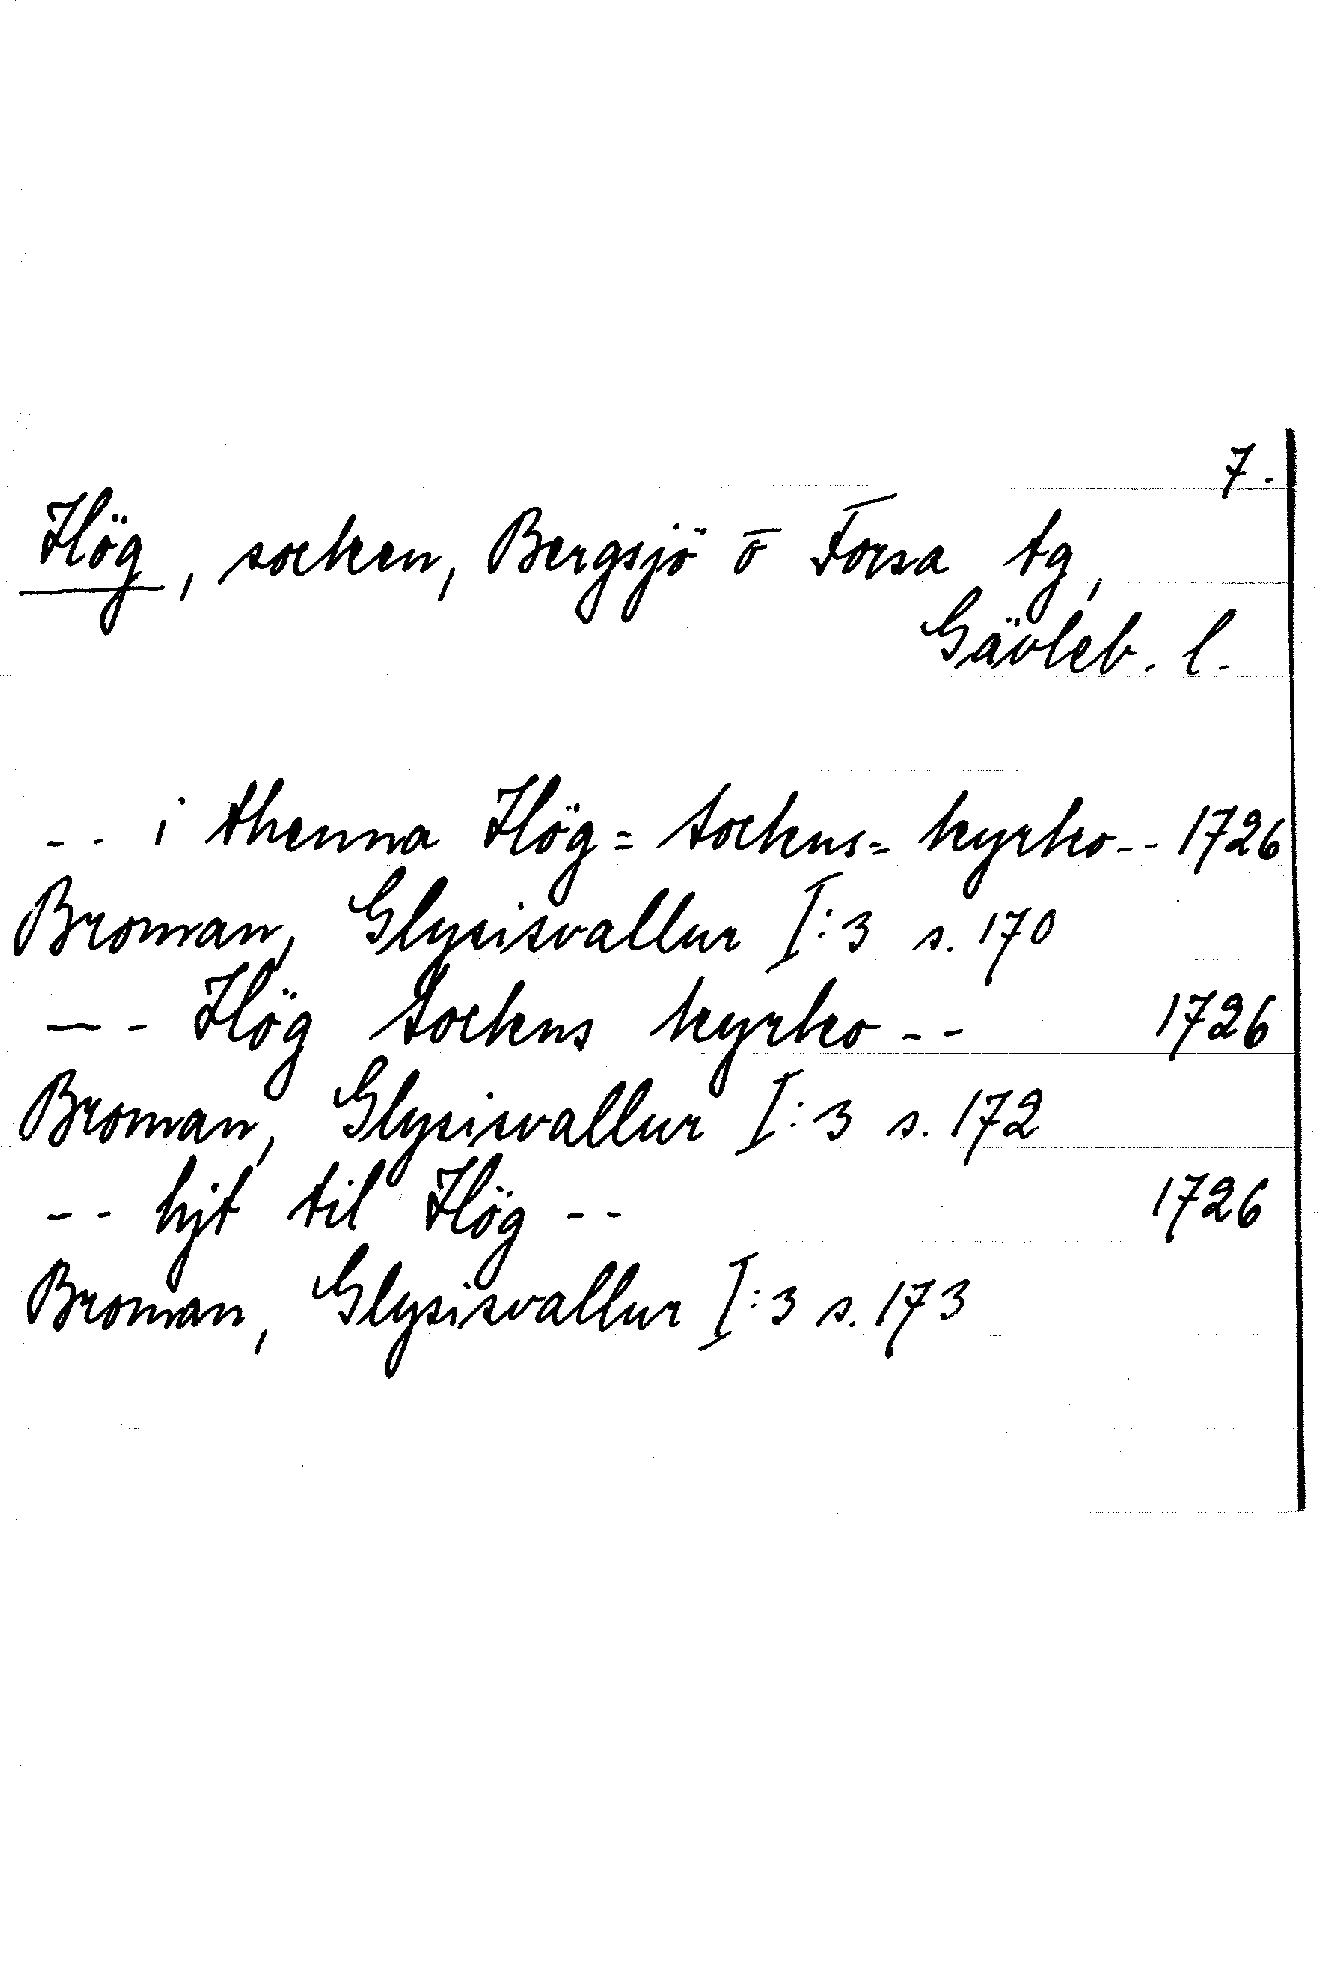 7.
Hög, socken, Bergsjö o Forsa tg,
Gävleb. l.
-- i thenna Hög= Sockns= kyrko -- 1726
Broman, Glysisvallur I:3 s. 170
-- Hög Sockns kyrko -- 1726
Broman, Glysisvallur I:3 s. 172
-- hjt til Hög -- 1726
Broman, Glysisvallur I:3 s. 173